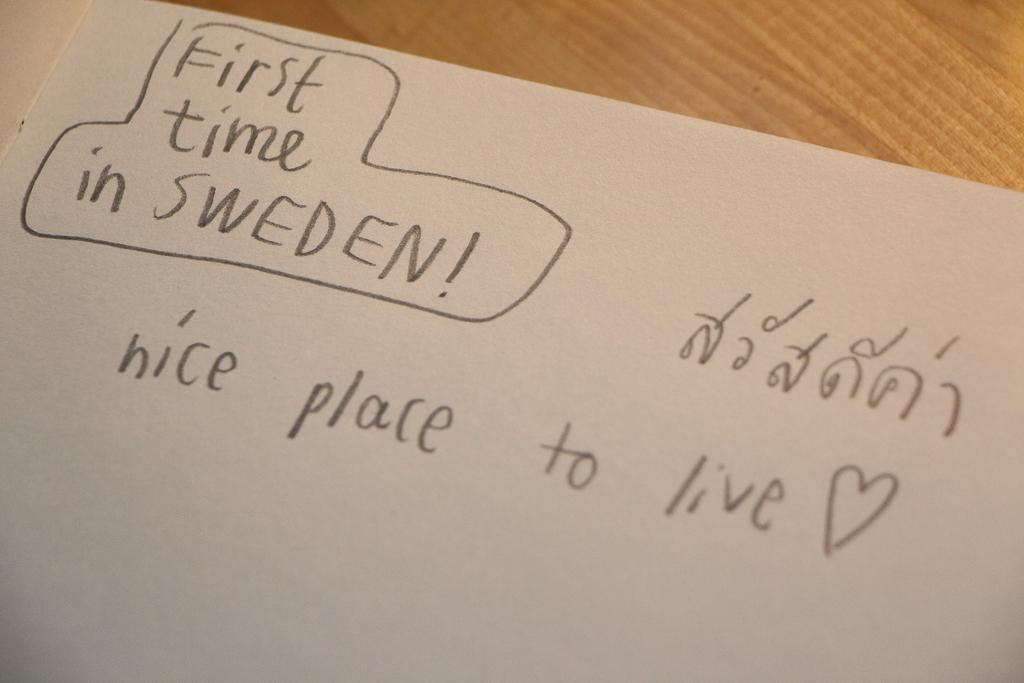 First
time
in SWEDEN!
สวัสดีค่า
nice place to live ♡